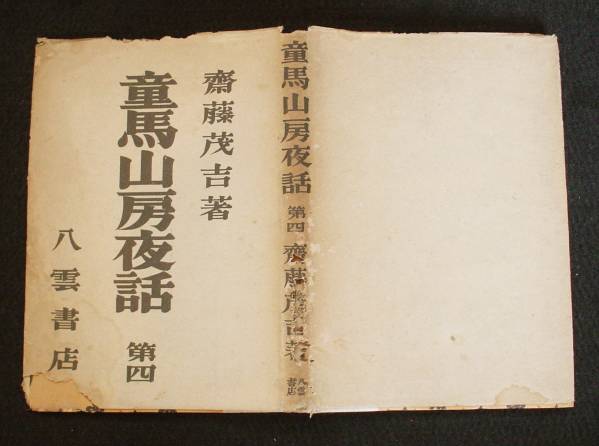 齋藤茂吉著
童馬山房夜話 第四
八雲書店
童馬山房夜話 第四 齋藤茂吉著 八雲書店